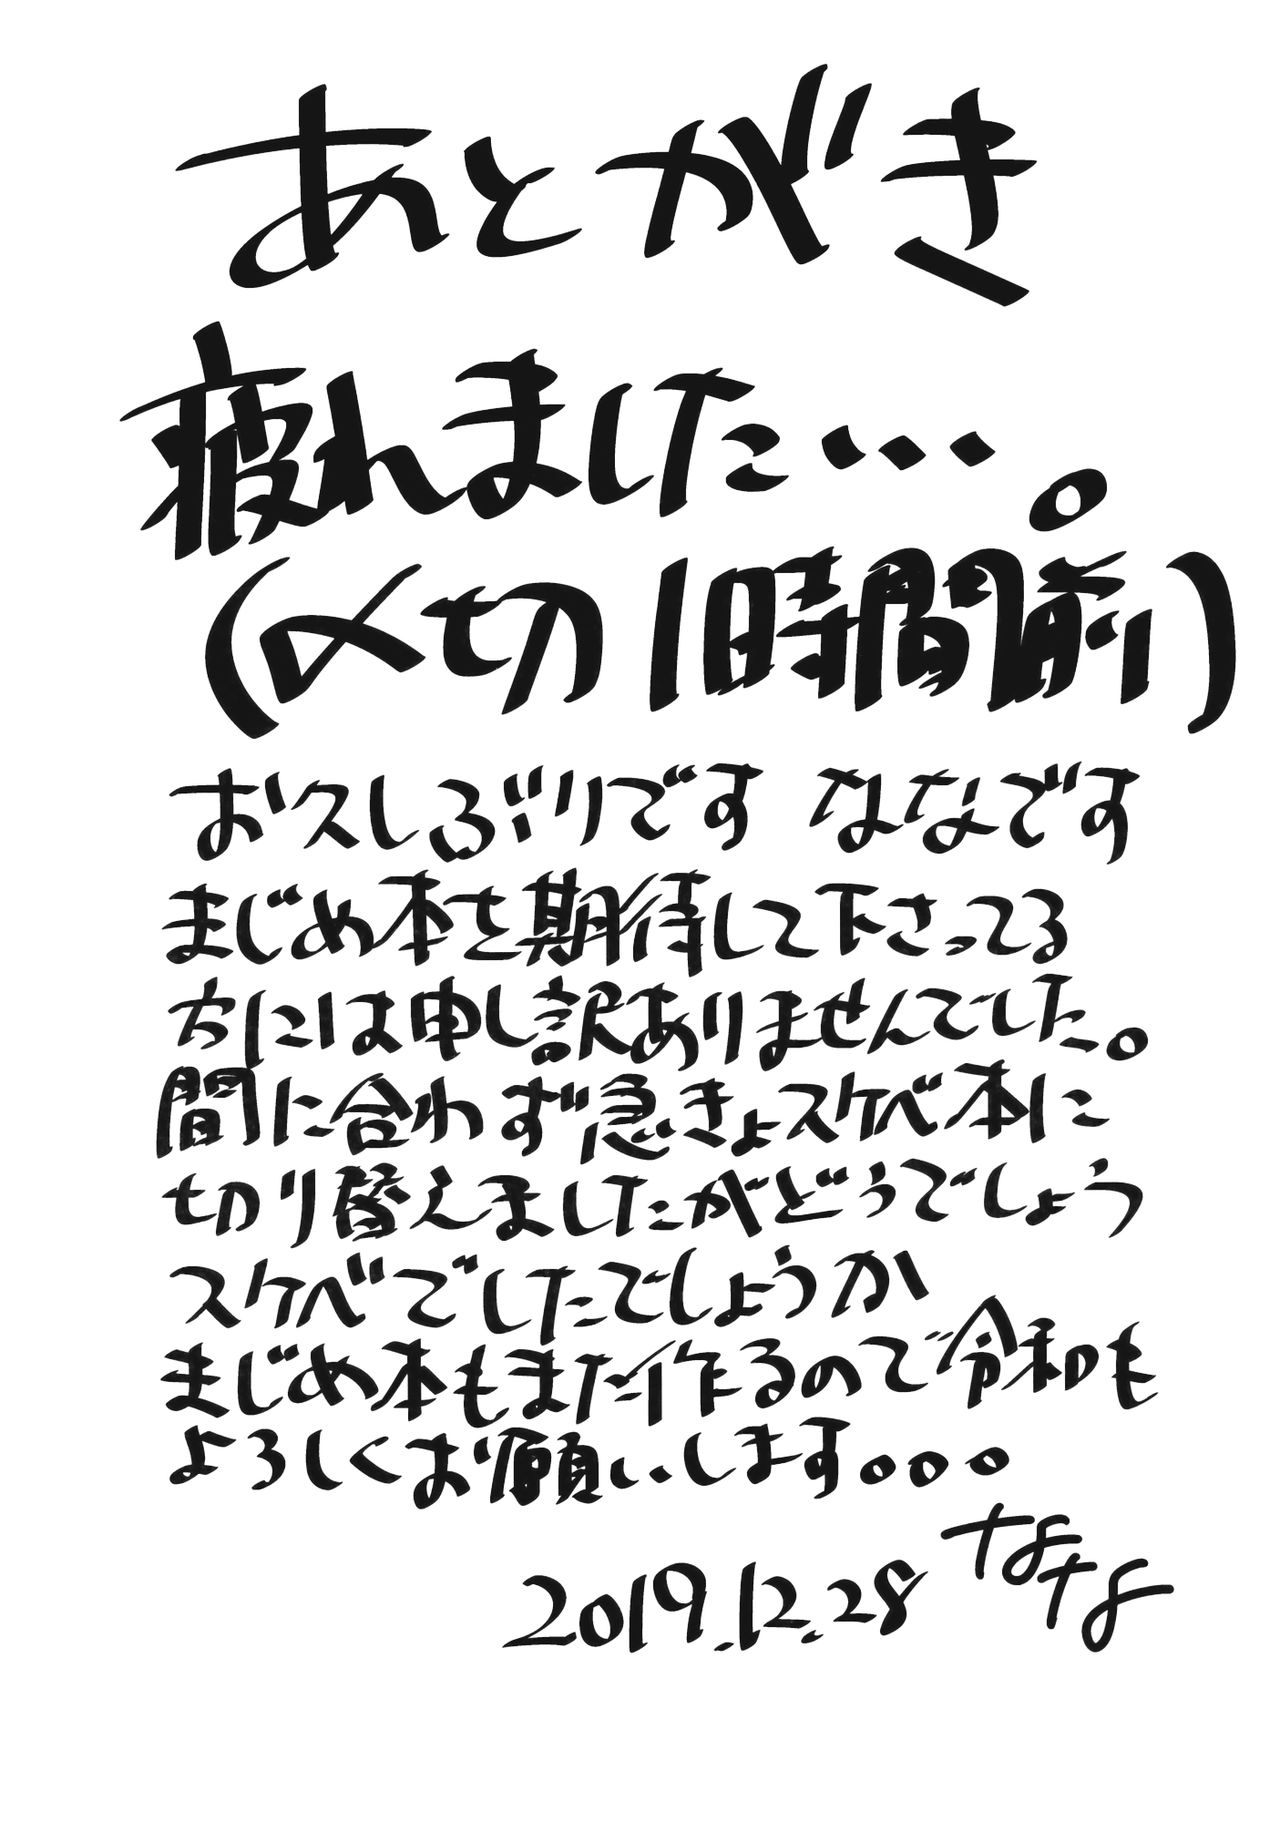 あとがき
疲れました…。
(〆切1時間前)
お久しぶりです ななです
まじめ本を期待して下さってる
方には申し訳ありませんでした。
間に合わず急きょスケベ本に
切り替えましたがどうでしょう
スケベでしたでしょうか
まじめ本もまた作るので令和も
よろしくお願いします。。。
2019.12.28 なな